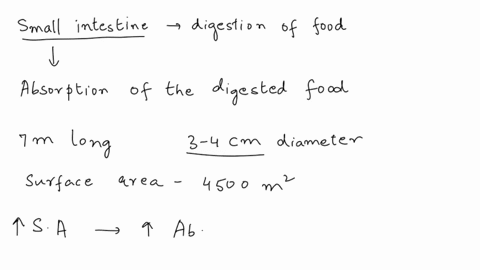 Small intestine → digestion of food
↓
Absorption of the digested food
7m long 3-4 cm diameter
Surface area - 4500 m²
↑ S.A → ↑ Ab.